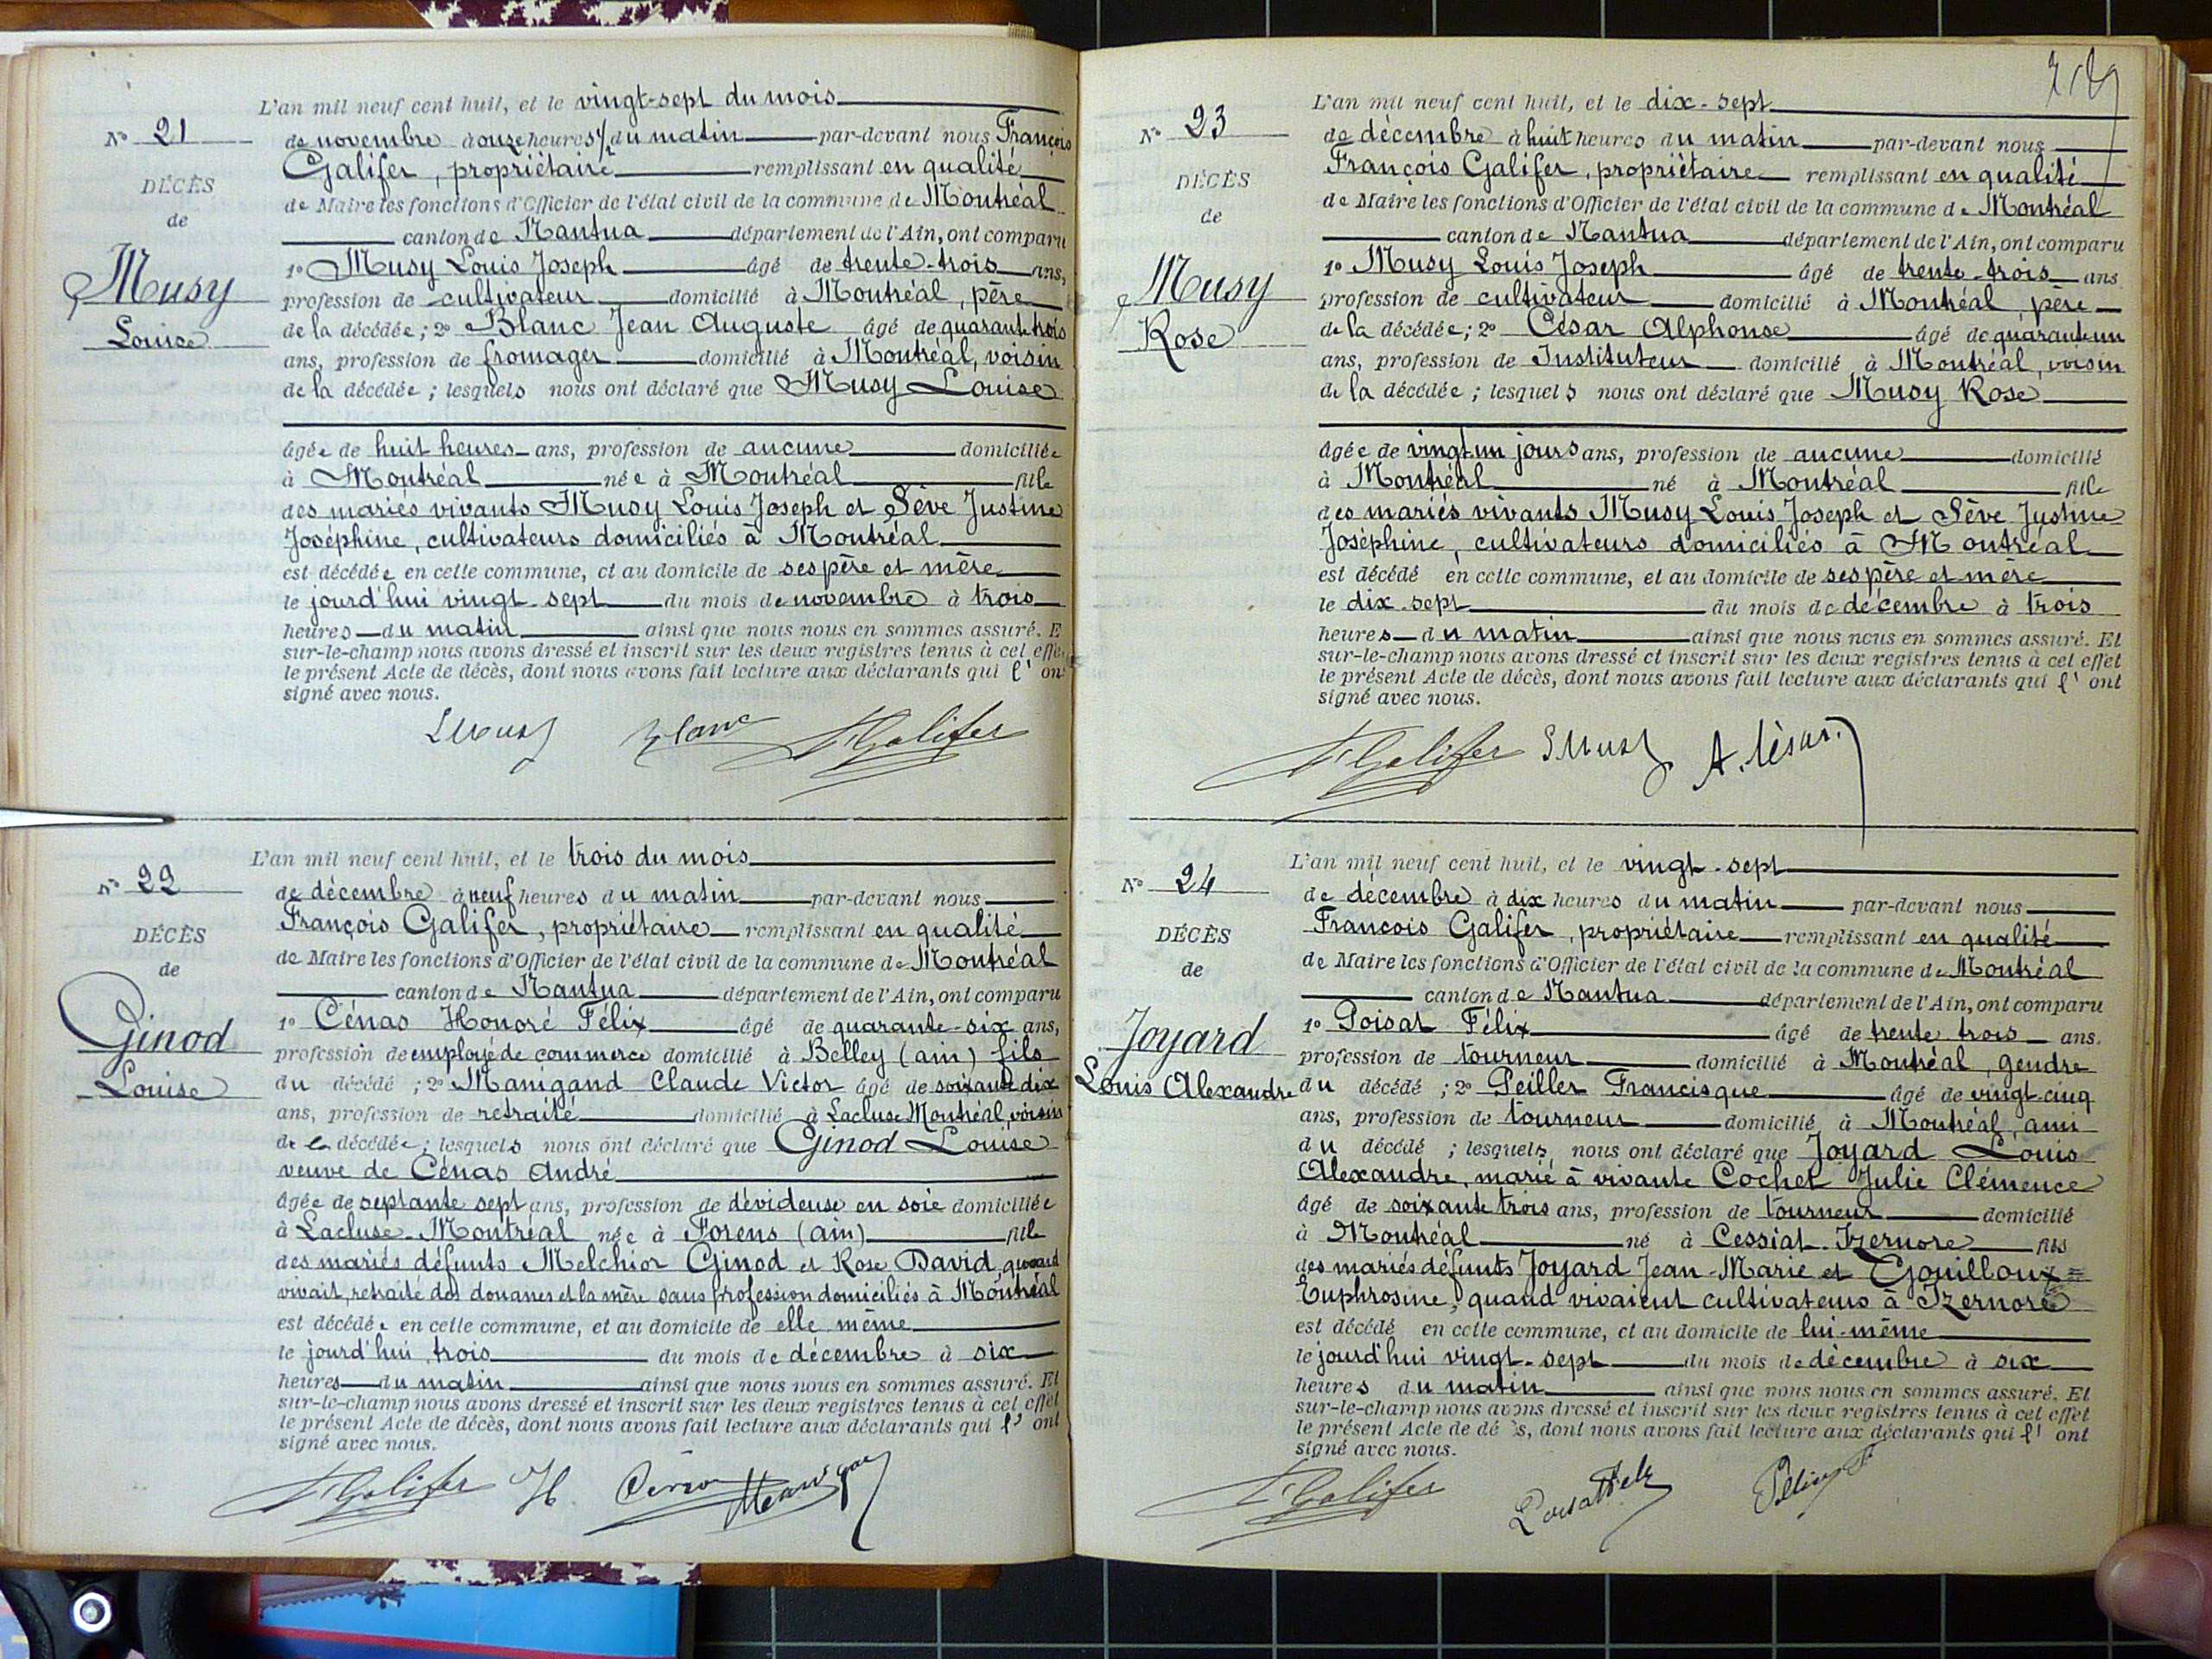 L'an mil neuf cent huit, et le vingt-sept du mois
N° 21
de novembre à onze heures 1/2 du matin par-devant nous François
Galifer, propriétaire remplissant en qualité
DÉCÈS
de Maire les fonctions d'Officier de l'état civil de la commune de Montréal
de
canton de Nantua département de l'Ain, ont comparu
Musy
1° Musy Louis Joseph âgé de trente-trois ans,
profession de cultivateur domicilié à Montréal, père
Louise
de la décédée ; 2° Blanc Jean Auguste âgé de quarante trois
ans, profession de fromager domicilié à Montréal, voisin
de la décédée ; lesquels nous ont déclaré que Musy Louise
âgée de huit heures ans, profession de aucune domiciliée
à Montréal née à Montréal fille
des mariés vivants Musy Louis Joseph et Sève Justine
Joséphine, cultivateurs domiciliés à Montréal
est décédée en cette commune, et au domicile de ses père et mère
le jourd'hui vingt-sept du mois de novembre à trois
heures du matin ainsi que nous nous en sommes assuré. E
sur-le-champ nous avons dressé et inscrit sur les deux registres tenus à cet effe
le présent Acte de décès, dont nous avons fait lecture aux déclarants qui l' on
signé avec nous.
LMusy Blanc FGalifer
L'an mil neuf cent huit, et le trois du mois
N° 22
de décembre à neuf heures du matin par-devant nous
François Galifer, propriétaire remplissant en qualité
DÉCÈS
de Maire les fonctions d'Officier de l'état civil de la commune de Montréal
de
canton de Nantua département de l'Ain, ont comparu
Ginod
1° Cénas Honoré Félix âgé de quarante-six ans,
profession de employé de commerce domicilié à Belley (ain) fils
Louise
du décédé ; 2° Manigand Claude Victor âgé de soixante dix
ans, profession de retraité domicilié à Lacluse Montréal, voisin
de la décédée ; lesquels nous ont déclaré que Ginod Louise
veuve de Cénas André
âgée de septante sept ans, profession de dévideuse en soie domiciliée
à Lacluse-Montréal née à Forens (ain) fille
des mariés défunts Melchior Ginod et Rose David, quand
vivait, retraité des douanes et la mère sans profession domiciliés à Montréal
est décédée en cette commune, et au domicile de elle même
le jourd'hui trois du mois de décembre à six
heures du matin ainsi que nous nous en sommes assuré. Et
sur-le-champ nous avons dressé et inscrit sur les deux registres tenus à cet effet
le présent Acte de décès, dont nous avons fait lecture aux déclarants qui l' ont
signé avec nous.
FGalifer H. Cénas Manigand
L'an mil neuf cent huit, et le dix-sept
N° 23
de décembre à huit heures du matin par-devant nous
François Galifer, propriétaire remplissant en qualité
DÉCÈS
de Maire les fonctions d'Officier de l'état civil de la commune de Montréal
de
canton de Nantua département de l'Ain, ont comparu
Musy
1° Musy Louis Joseph âgé de trente-trois ans
profession de cultivateur domicilié à Montréal, père
Rose
de la décédée ; 2° César Alphonse âgé de quarante un
ans, profession de Instituteur domicilié à Montréal, voisin
de la décédée ; lesquels nous ont déclaré que Musy Rose
âgée de vingt-un jours ans, profession de aucune domicilié
à Montréal né à Montréal fille
des mariés vivants Musy Louis Joseph et Sève Justine
Joséphine, cultivateurs domiciliés à Montréal
est décédé en cette commune, et au domicile de ses père et mère
le dix-sept du mois de décembre à trois
heures du matin ainsi que nous nous en sommes assuré. Et
sur-le-champ nous avons dressé et inscrit sur les deux registres tenus à cet effet
le présent Acte de décès, dont nous avons fait lecture aux déclarants qui l' ont
signé avec nous.
FGalifer LMusy A. César
L'an mil neuf cent huit, et le vingt-sept
N° 24
de décembre à dix heures du matin par-devant nous
Francois Galifer, propriétaire remplissant en qualité
DÉCÈS
de Maire les fonctions d'Officier de l'état civil de la commune de Montréal
de
canton de Nantua département de l'Ain, ont comparu
Joyard
1° Poisat Félix âgé de trente trois ans.
profession de tourneur domicilié à Montréal, gendre
Louis Alexandre
du décédé ; 2° Peiller Francisque âgé de vingt-cinq
ans, profession de tourneur domicilié à Montréal, ami
du décédé ; lesquels nous ont déclaré que Joyard Louis
Alexandre, marié à vivante Cochet Julie Clémence
âgé de soixante trois ans, profession de tourneur domicilié
à Montréal né à Cessiat-Izernore fils
des mariés défunts Joyard Jean-Marie et Gouilloux=
Euphrosine, quand vivaient cultivateurs à Izernore
est décédé en cette commune, et au domicile de lui-même
le jourd'hui vingt-sept du mois de décembre à six
heures du matin ainsi que nous nous en sommes assuré. Et
sur-le-champ nous avons dressé et inscrit sur les deux registres tenus à cet effet
le présent Acte de dé s, dont nous avons fait lecture aux déclarants qui l' ont
signé avec nous.
FGalifer Poisat Felix